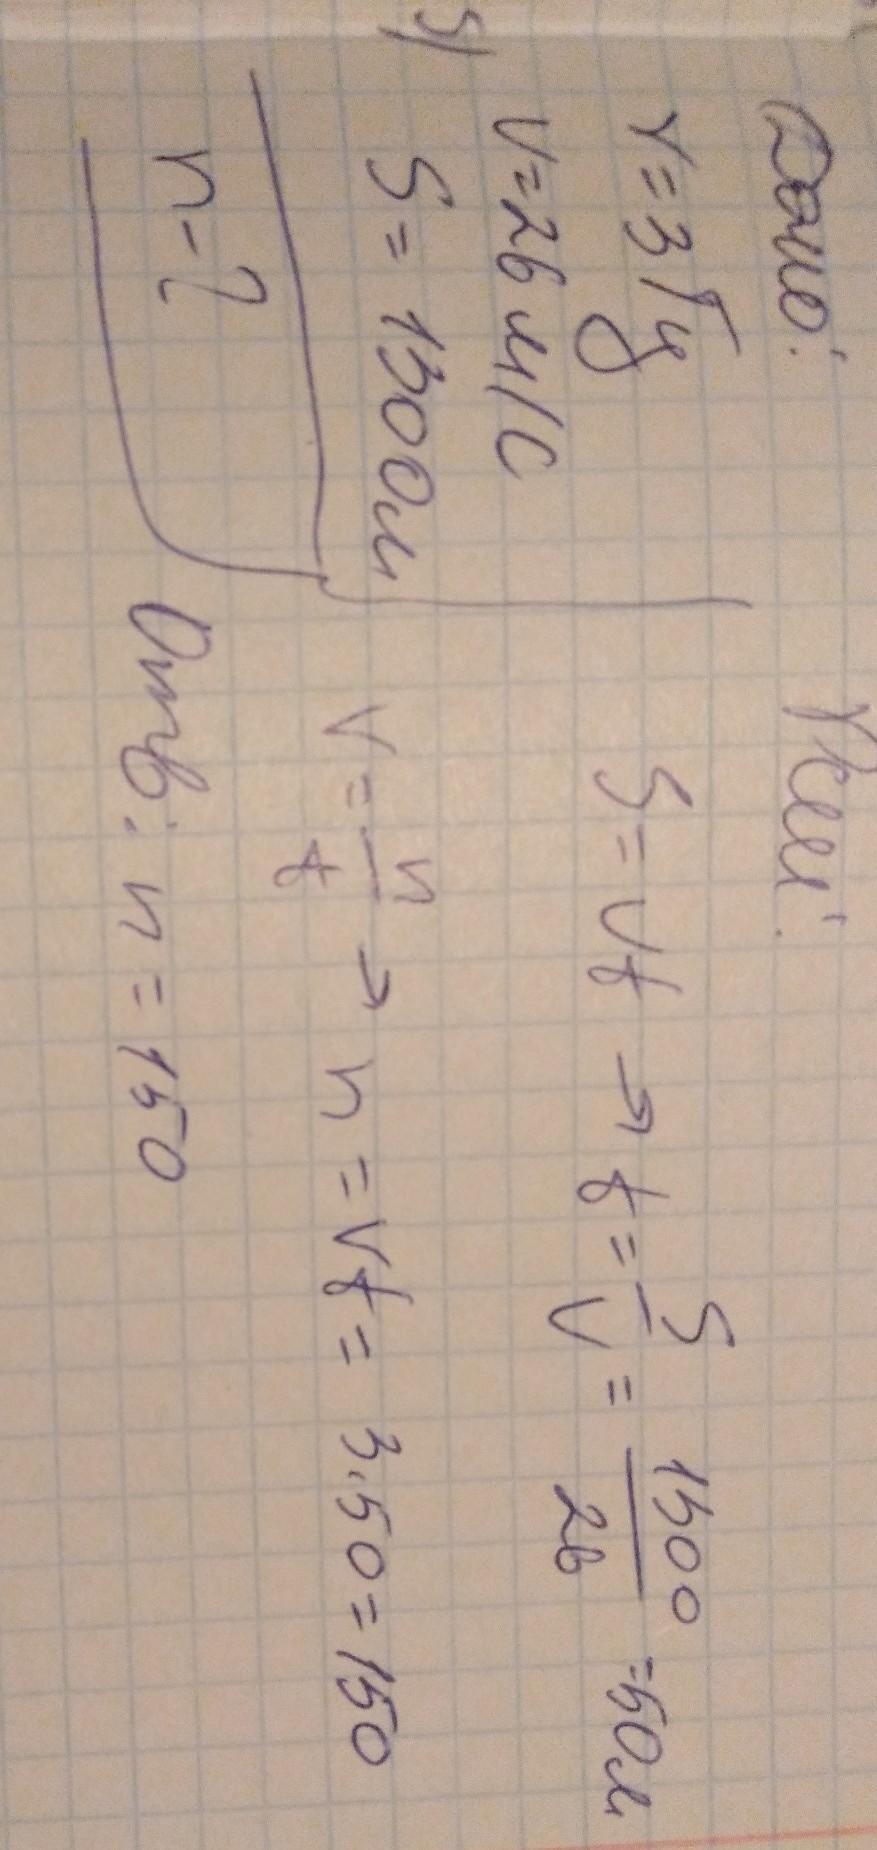 Дано:
ν=3 Гц
V=26 м/с
S= 1300м
n-?
Реш:
S=Vt → t=S/V = 1300/26 =50м
ν=n/t → n=νt= 3·50=150
Отв: n=150